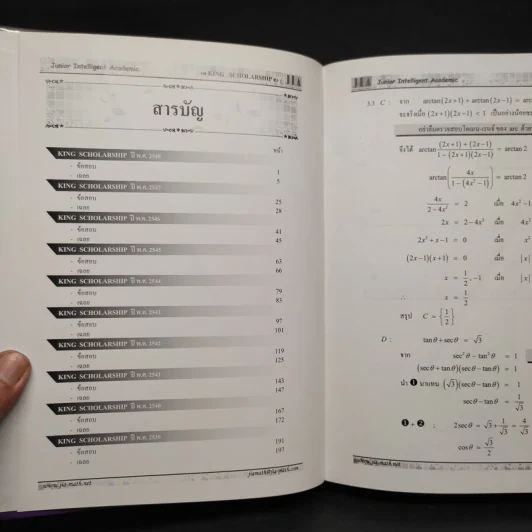 Junior Intelligent Academic
KING SCHOLARSHIP
สารบัญ
หน้า
KING SCHOLARSHIP ปี พ.ศ. 2548
- ข้อสอบ 1
- เฉลย 5
KING SCHOLARSHIP ปี พ.ศ. 2547
- ข้อสอบ 25
- เฉลย 28
KING SCHOLARSHIP ปี พ.ศ. 2546
- ข้อสอบ 41
- เฉลย 45
KING SCHOLARSHIP ปี พ.ศ. 2545
- ข้อสอบ 63
- เฉลย 66
KING SCHOLARSHIP ปี พ.ศ. 2544
- ข้อสอบ 79
- เฉลย 83
KING SCHOLARSHIP ปี พ.ศ. 2543
- ข้อสอบ 97
- เฉลย 101
KING SCHOLARSHIP ปี พ.ศ. 2542
- ข้อสอบ 119
- เฉลย 125
KING SCHOLARSHIP ปี พ.ศ. 2541
- ข้อสอบ 143
- เฉลย 147
KING SCHOLARSHIP ปี พ.ศ. 2540
- ข้อสอบ 167
- เฉลย 172
KING SCHOLARSHIP ปี พ.ศ. 2539
- ข้อสอบ 191
- เฉลย 197
www.jia-math.net
Junior Intelligent Academic
3.3 C : จาก arctan(2x+1) + arctan(2x−1) = arc
จะจริงเมื่อ (2x+1)(2x−1) < 1
จึงได้ arctan (2x+1)+(2x−1) / 1−(2x+1)(2x−1) = arctan 2
arctan(4x / 1−(4x²−1)) = arctan 2
4x / 2−4x² = 2 เมื่อ 4x²−1
2x = 2−4x² เมื่อ 4x²
2x²+x−1 = 0 เมื่อ x²
(2x−1)(x+1) = 0 เมื่อ |x|
x = 1/2, −1 เมื่อ |x|
∴ x = 1/2
สรุป C = {1/2}
D : tanθ + secθ = √3
จาก sec²θ − tan²θ = 1
(secθ + tanθ)(secθ − tanθ) = 1
นำ ❶ มาแทน (√3)(secθ − tanθ) = 1
secθ − tanθ = 1/√3
❶ + ❷ : 2secθ = √3 + 1/√3 = 4/√3
cosθ = √3/2
www.jia-math.net